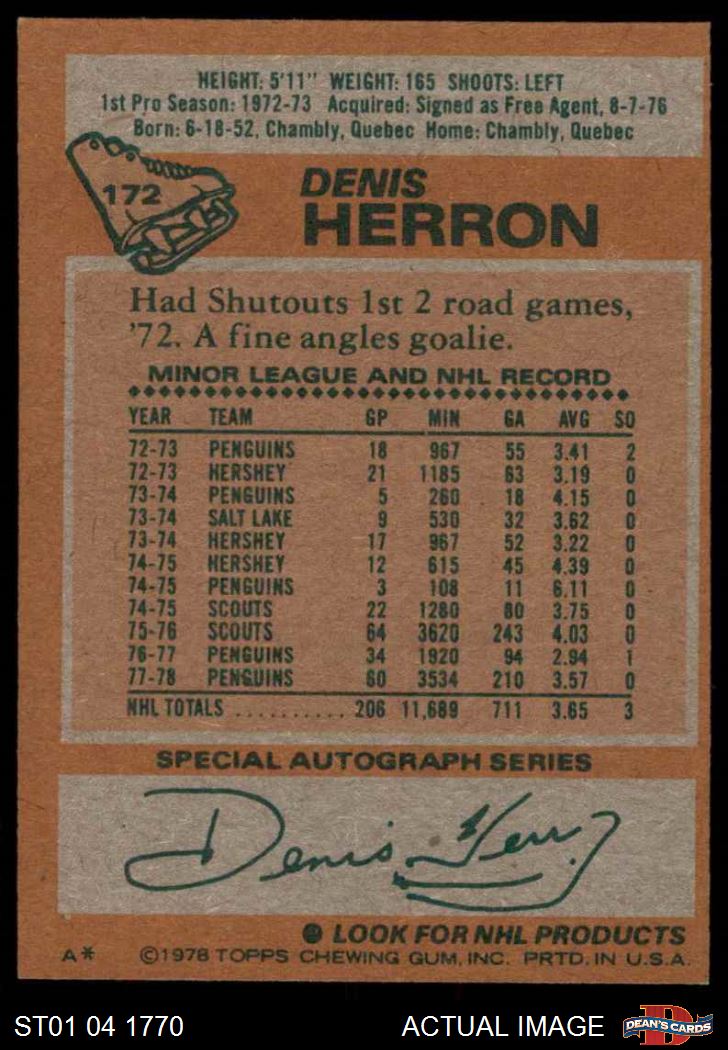 HEIGHT: 5'11" WEIGHT: 165 SHOOTS: LEFT
1st Pro Season: 1972-73 Acquired: Signed as Free Agent, 8-7-76
Born: 6-18-52, Chambly, Quebec Home: Chambly, Quebec
172
DENIS
HERRON
Had Shutouts 1st 2 road games,
'72. A fine angles goalie.
MINOR LEAGUE AND NHL RECORD
YEAR TEAM GP MIN GA AVG SO
72-73 PENGUINS 18 967 55 3.41 2
72-73 HERSHEY 21 1185 63 3.19 0
73-74 PENGUINS 5 260 18 4.15 0
73-74 SALT LAKE 9 530 32 3.62 0
73-74 HERSHEY 17 967 52 3.22 0
74-75 HERSHEY 12 615 45 4.39 0
74-75 PENGUINS 3 108 11 6.11 0
74-75 SCOUTS 22 1280 80 3.75 0
75-76 SCOUTS 64 3620 243 4.03 0
76-77 PENGUINS 34 1920 94 2.94 1
77-78 PENGUINS 60 3534 210 3.57 0
NHL TOTALS .......... 206 11,689 711 3.65 3
SPECIAL AUTOGRAPH SERIES
Denis Herron
LOOK FOR NHL PRODUCTS
A* ©1978 TOPPS CHEWING GUM, INC. PRTD. IN U.S.A.
ST01 04 1770 ACTUAL IMAGE D DEAN'S CARDS